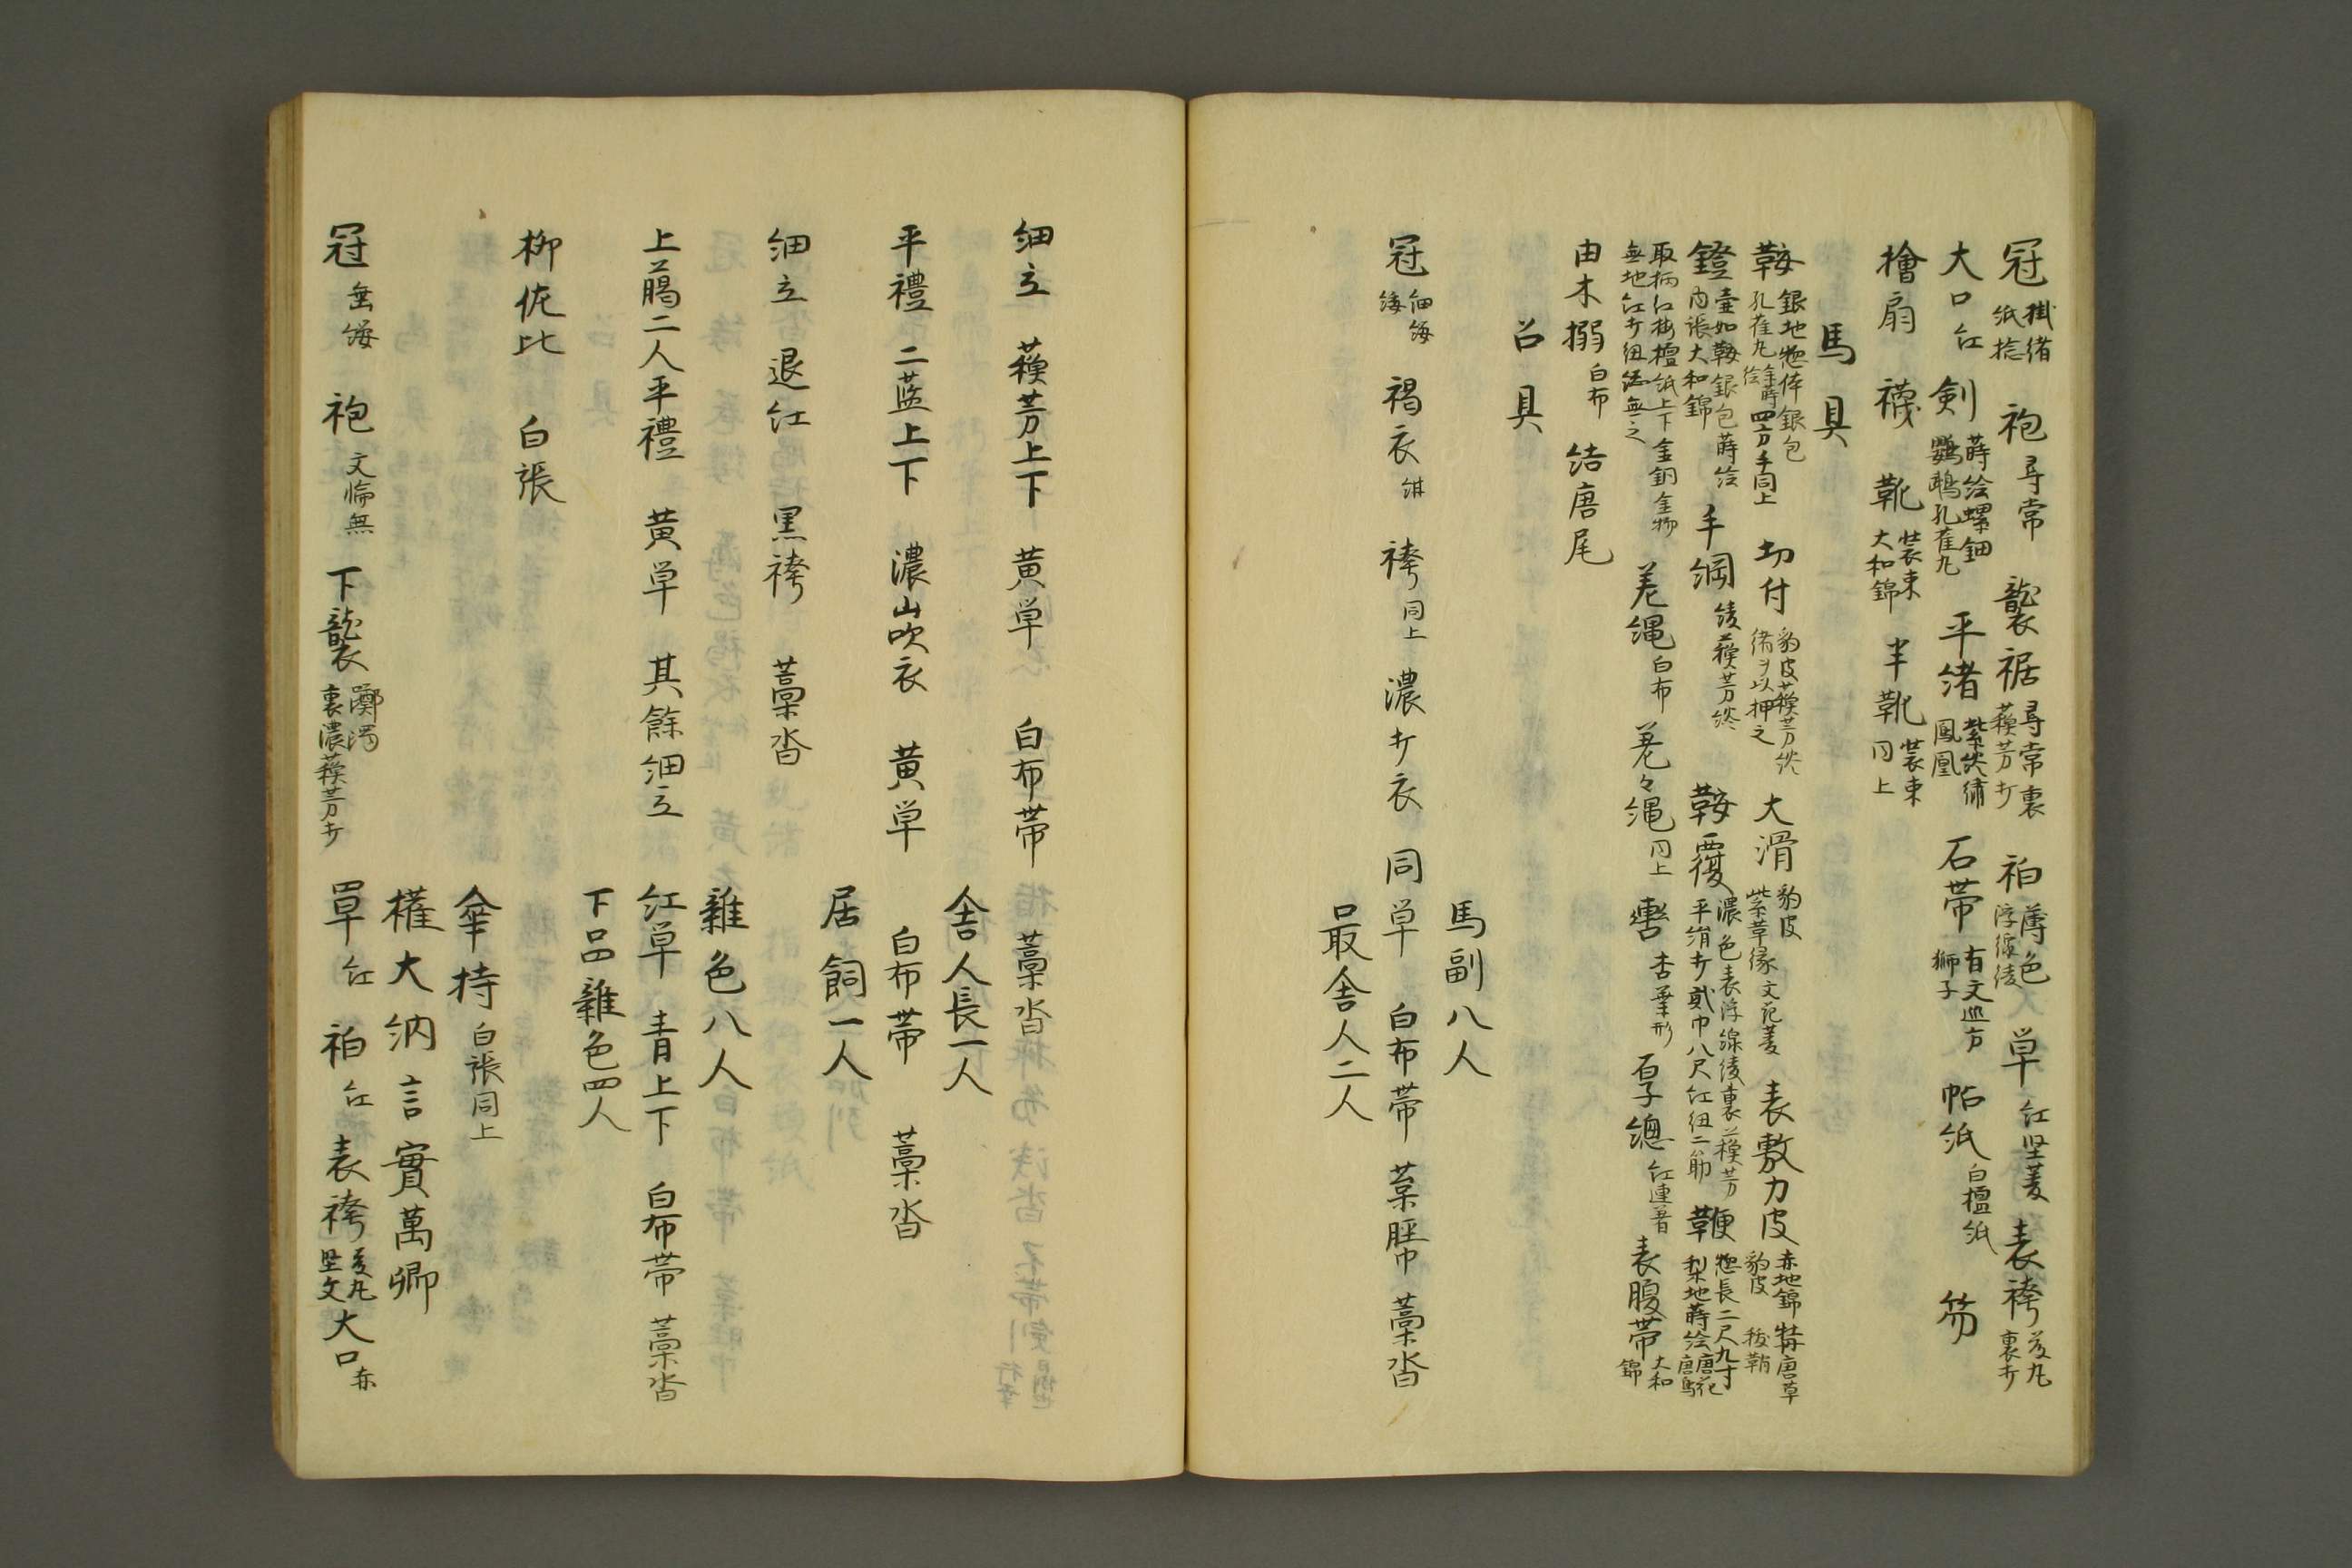 冠 掛緒 紙捻 袍 尋常 襲裾 尋常裏 蘓芳打 衵 薄色 浮線綾 単 紅竪菱 表袴 菱丸 裏打
大口 紅 剣 蒔絵螺鈿 鸚鵡孔雀丸 平緒 紫淡繍 鳳凰 石帯 有文巡方 獅子 帖紙 白檀紙 笏
檜扇 襪 靴 装束 大和錦 半靴 装束 同上
馬具
鞍 銀地惣体銀包 孔雀丸 金蒔絵 四方手同上 切付 豹皮蘓芳淡 緒ヲ以押之 大滑 豹皮 紫革縁 文花菱 表敷力皮 赤地錦 唐草 豹皮
鐙 壷如鞍銀包蒔絵 内張大和錦 手綱 綾蘓芳淡 鞍覆 濃色表浮線綾裏蘓芳 平絹打貮巾八尺紅紐二筋 鞭 惣長二尺九寸 梨地蒔絵唐花唐鳥
取柄紅梅檀紙上下金銅金物 無地紅打紐 無之 差縄 白布 差々縄 同上 轡 杏葉形 総 紅連着 表腹帯 大和錦
由木搦 白布 結唐尾
召具
馬副八人
冠 細纓 緌 褐衣 紺 袴 同上 濃打衣 同単 白布帯 葉脛巾 藁沓
最舎人二人
細立 蘓芳上下 黄単 白布帯 藁沓
舎人長一人
平禮 二藍上下 濃山吹衣 黄単 白布帯 藁沓
居飼一人
細立 退紅 黒袴 藁沓
雜色八人
上﨟二人平禮 黄単 其餘細立 紅単 青上下 白布帯 藁沓
下品雜色四人
柳佐比 白張
傘持 白張同上
權大納言實萬卿
冠 垂纓 袍 文輪無 下襲 躑躅 裏濃蘓芳打 単 紅 衵 紅 表袴 菱丸 竪文 大口 赤